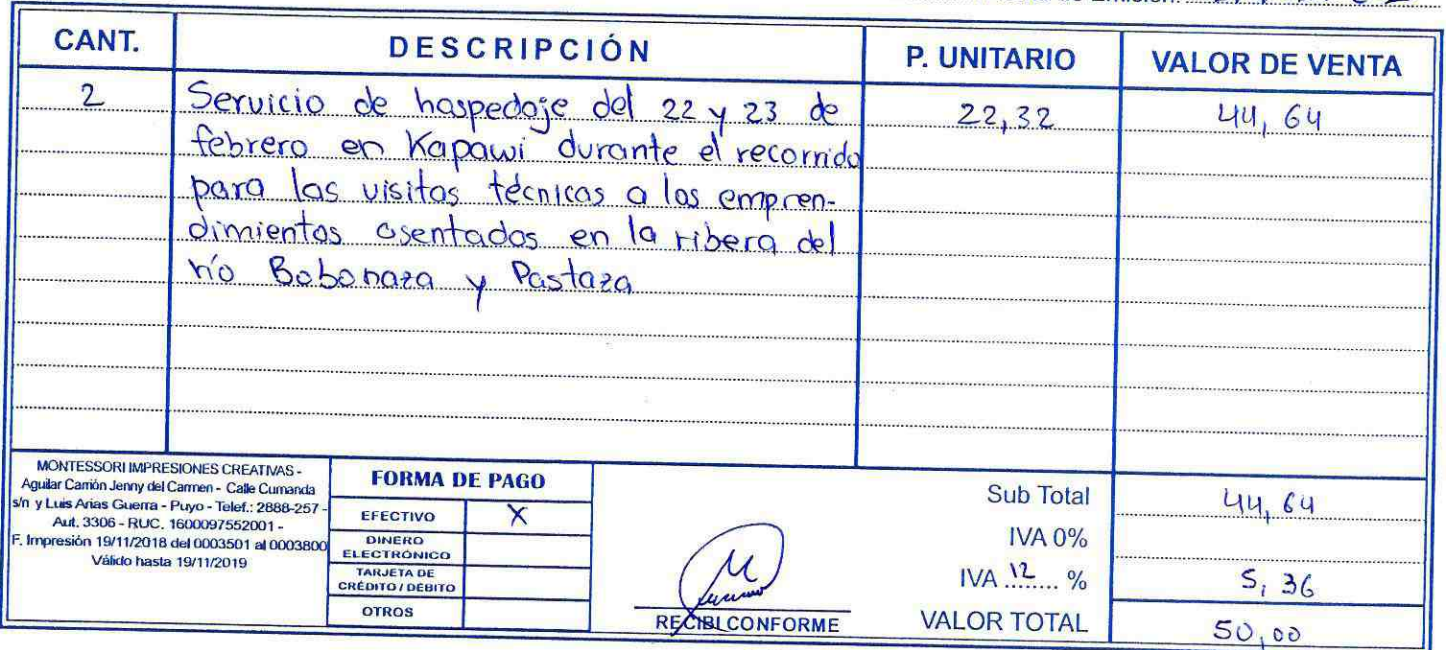 CANT. DESCRIPCIÓN P. UNITARIO VALOR DE VENTA
2 Servicio de hospedaje del 22 y 23 de 22,32 44,64
febrero en Kapawi durante el recorrido
para las visitas técnicas a los empren-
dimientos asentados en la ribera del
río Bobonaza y Pastaza
MONTESSORI IMPRESIONES CREATIVAS -
Aguilar Carrión Jenny del Carmen - Calle Cumanda
s/n y Luis Arias Guerra - Puyo - Telef.: 2888-257 -
Aut. 3306 - RUC. 1600097552001 -
F. Impresión 19/11/2018 del 0003501 al 0003800
Válido hasta 19/11/2019
FORMA DE PAGO
EFECTIVO X
DINERO
ELECTRÓNICO
TARJETA DE
CRÉDITO / DÉBITO
OTROS
RECIBI CONFORME
Sub Total 44,64
IVA 0%
IVA 12 % 5,36
VALOR TOTAL 50,00